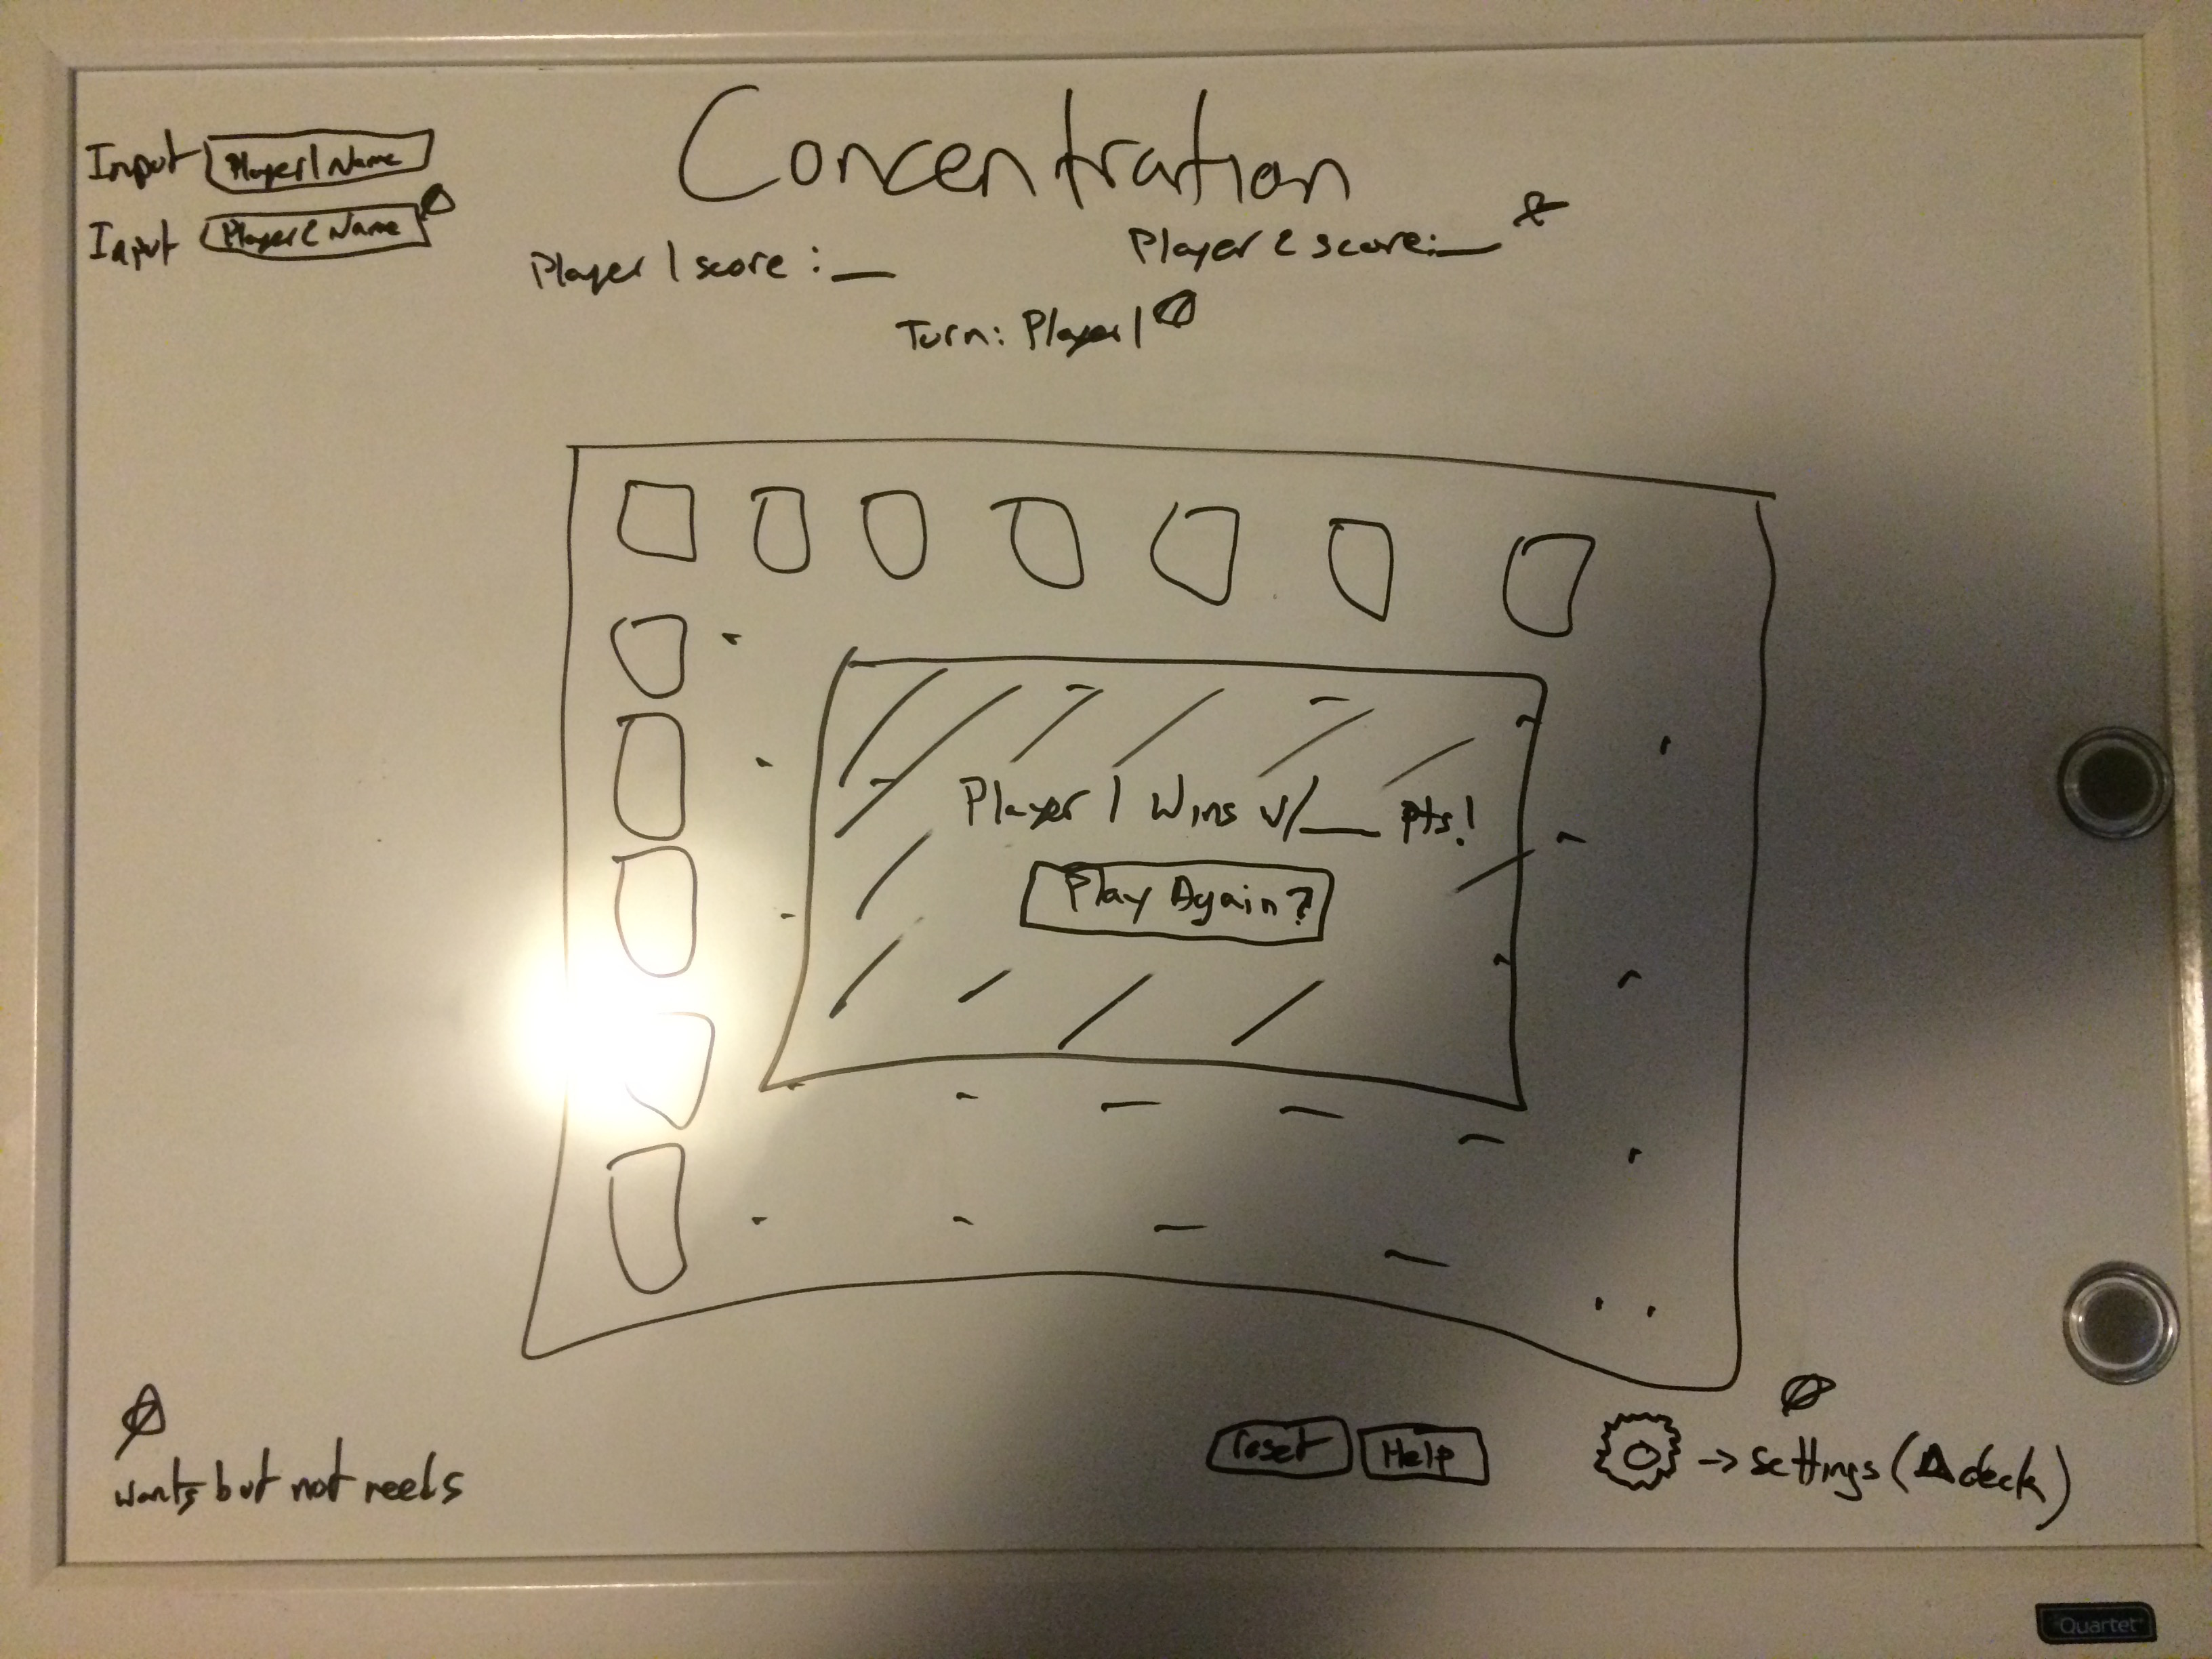 Concentration
Input Player 1 Name
Input Player 2 Name
Player 1 score: __
Player 2 score: __
Turn: Player 1
Player 1 Wins w/ __ pts!
Play Again?
wants but not needs
reset
Help
→ settings (Δ deck)
Quartet